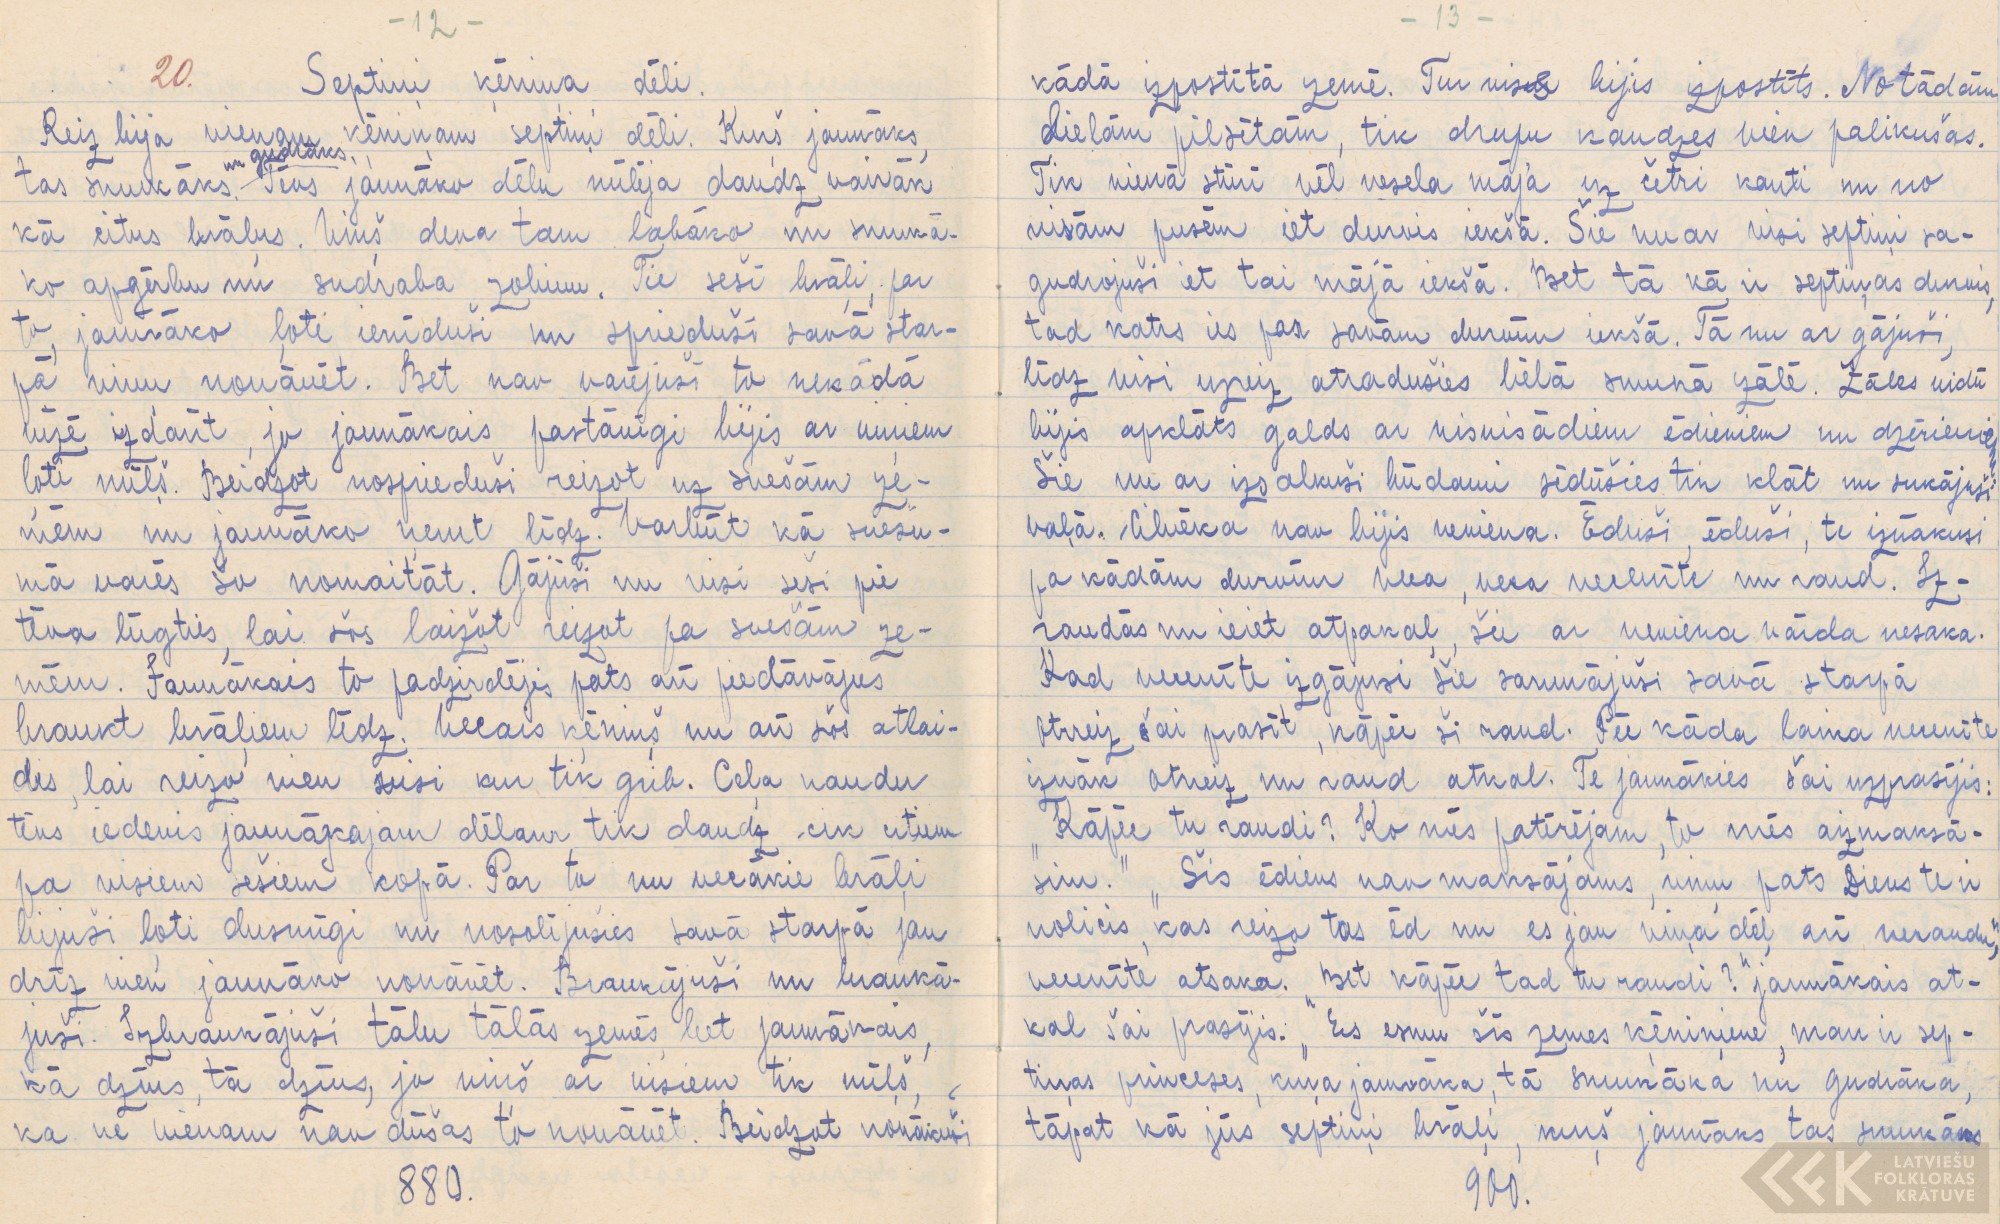 -12-
20. Septiņi ķēniņa dēli.
Reiz bija vienam ķēniņam septiņi dēli. Kuŗš jaunāks,
un gudrāks.
tas smukāks. Tēvs jaunāko dēlu mīlēja daudz vairāk
kā citus brāļus. Viņš deva tam labāko un smukā-
ko apģērbu un sudraba zobinu. Tie seši brāļi, par
to, jaunāko ļoti ienīduši un sprieduši savā star-
pā viņu nonāvēt. Bet nav varējuši to nekādā
vīzē izdarīt, jo jaunākais pastāvīgi bijis ar viņiem
ļoti mīļš. Beidzot nosprieduši reizot uz svešām ze-
mēm un jaunāko ņemt līdz. Varbūt kā svešu-
mā varēs šo nomaitāt. Gājuši nu visi seši pie
tēva lūgties, lai šos laižot reizot pa svešām ze-
mēm. Jaunākais to padzirdējis pats arī piedāvājies
braukt brāļiem līdz. Vecais ķēniņš nu arī šos atlai-
dis, lai reizo vien visi kur tik grib. Ceļa naudu
tēvs iedevis jaunākajam dēlam tik daudz cik citiem
pa visiem sešiem kopā. Par to nu vecākie brāļi
bijuši ļoti dusmīgi un nosolījušies savā starpā jau
drīz vien jaunāko nonāvēt. Braukājuši nu braukā-
juši. Izbraukājuši tālu tālās zemēs, bet jaunākais,
kā dzīvs, tā dzīvs, jo viņš ar visiem tik mīļš,
ka ne vienam nav dūšas to nonāvēt. Beidzot nonākuši
880.
-13-
kādā izpostītā zemē. Tur viss bijis izpostīts. No tādām
lielām pilsētām, tik drupu kaudzes vien palikušas.
Tik vienā stūrī vēl vesela māja uz četri kanti un no
visām pusēm iet durvis iekšā. Šie nu ar visi septiņi sa-
gudrojuši iet tai mājā iekšā. Bet tā kā ir septiņas durvis,
tad katrs ies par savām durvīm iekšā. Tā nu ar gājuši,
līdz visi uzreiz atradušies lielā smukā zālē. Zāles vidū
bijis apklāts galds ar visvisādiem ēdieniem un dzērieniem.
Šie nu ar izsalkuši būdami sēdušies tik klāt un sukājuši
vaļā. Cilvēka nav bijis neviena. Ēduši, ēduši, te iznākusi
pa kādām durvīm veca, veca vecenīte un raud. Iz-
raudās un ieiet atpakaļ, šie ar neviena vārda nesaka.
Kad vecenīte izgājusi šie sarunājuši savā starpā
otrreiz šai prasīt, kāpēc ši raud. Pēc kāda laika vecenīte
iznāk otrreiz un raud atkal. Te jaunākies šai uzprasījis:
„Kāpēc tu raudi? Ko mēs patērējam, to mēs aizmaksā-
sim.” „Šis ēdiens nav maksājams, viņu pats Dievs te ir
nolicis, kas reizo tas ēd un es jau viņa dēļ arī neraudu,”
vecenīte atsaka. „Bet kāpēc tad tu raudi?” jaunākais at-
kal šai prasījis. „Es esmu šīs zemes ķēniņiene, man ir sep-
tiņas princeses, kuŗa jaunāka, tā smukāka un gudrāka,
tāpat kā jūs septiņi brāļi, kuŗš jaunāks tas smukāks
900.
LATVIEŠU
FOLKLORAS
KRĀTUVE